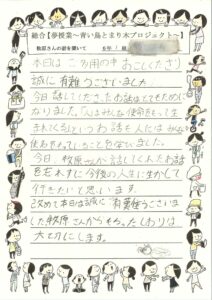 総合【夢授業～青い鳥とまり木プロジェクト～】
牧原さんの話を聞いて 6年
本日はご多用の中おこしくださり
誠に有難うございました
今日話してくださったお話はとてもために
なりました。人はみんな使命をもって生
まれてくるというお話を人にはみんな
使命をもっていることを学びました。
今日、牧原さんから話してくれたお話
を忘れずに今後の人生に生かして
行きたいと思います。
改めて本日は誠に有難うございま
した牧原さんからもらったしおりは
大切にします。